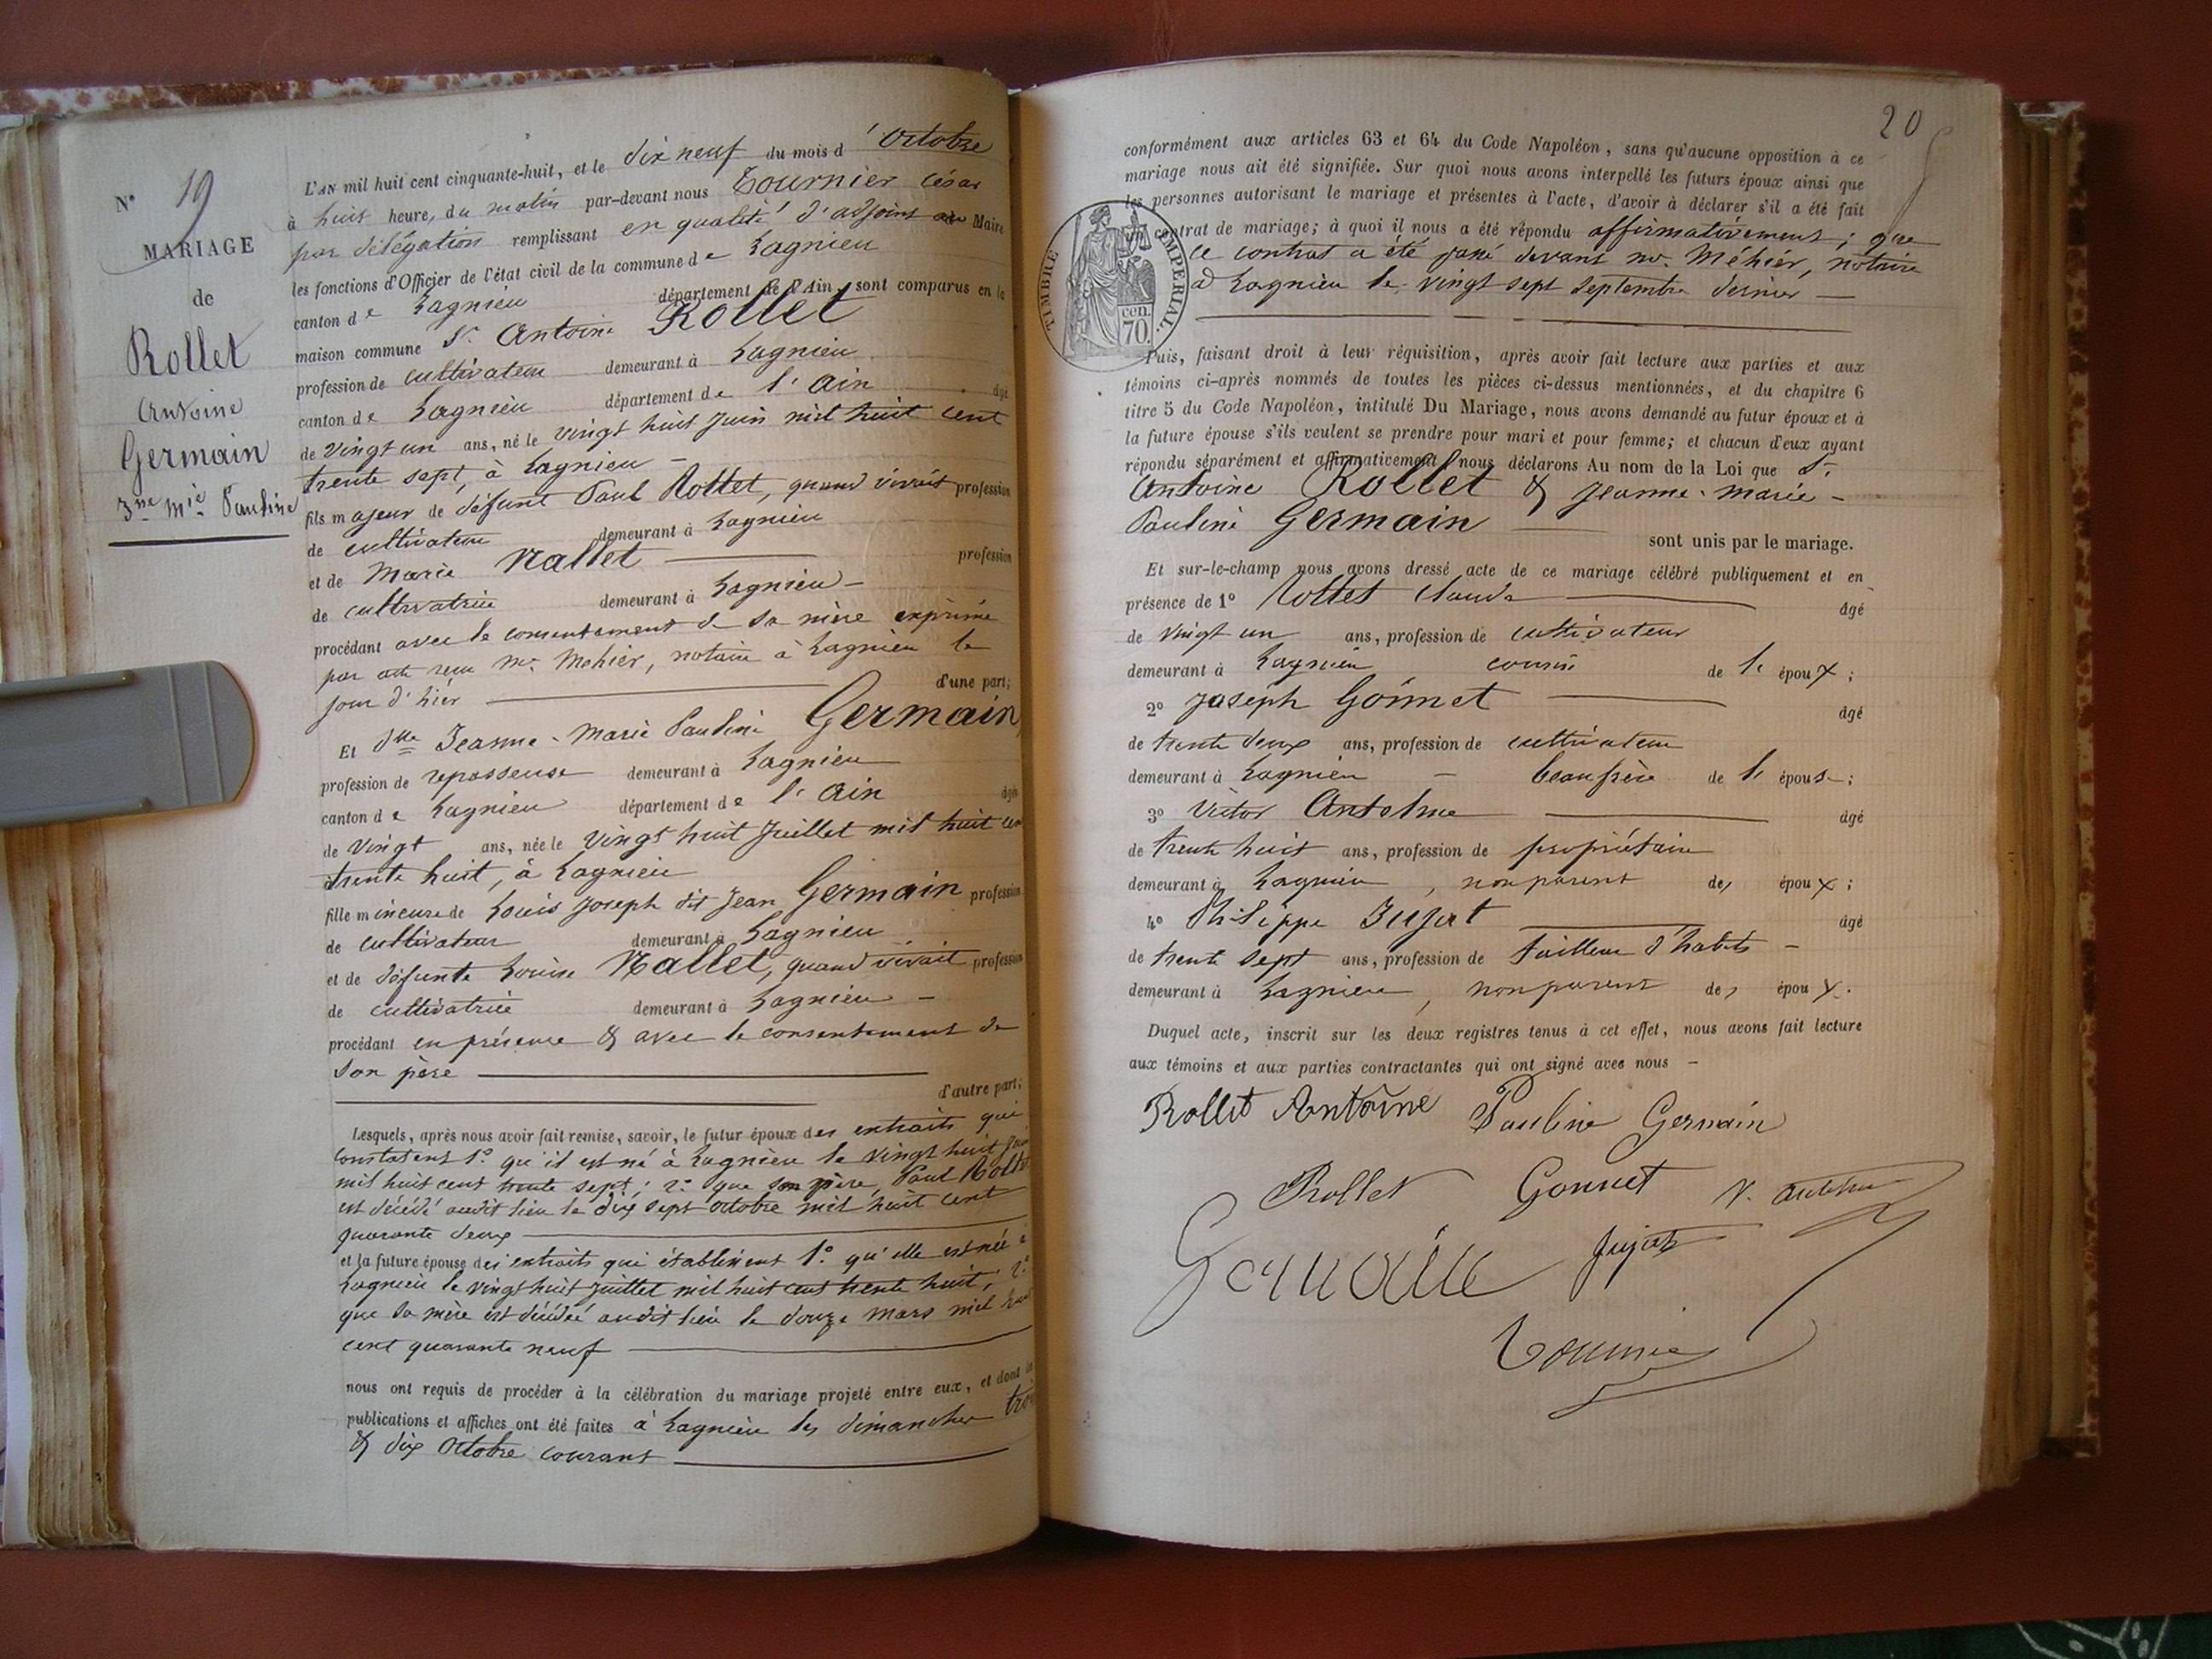 N° 19
MARIAGE
de
Rollet
Antoine
Germain
Jne Mie Pauline
L'AN mil huit cent cinquante-huit, et le dix neuf du mois d'Octobre
à huit heure, du matin par-devant nous Tournier César
par délégation remplissant en qualité d'adjoint au Maire
les fonctions d'Officier de l'état civil de la commune de Lagnieu
canton de Lagnieu département de l'Ain, sont comparus en la
maison commune Sr Antoine Rollet
profession de cultivateur demeurant à Lagnieu
canton de Lagnieu département de l'Ain âgé
de vingt un ans, né le vingt huit Juin mil huit cent
trente sept, à Lagnieu -
fils majeur de défunt Paul Rollet, quand vivait profession
de cultivateur demeurant à Lagnieu
et de Marie Nallet profession
de cultivatrice demeurant à Lagnieu -
procédant avec le consentement de sa mère exprimé
par acte reçu Me Méhier, notaire à Lagnieu le
jour d'hier d'une part;
Et Dlle Jeanne-Marie Pauline Germain,
profession de repasseuse demeurant à Lagnieu
canton de Lagnieu département de l'Ain âgée
de vingt ans, née le vingt huit Juillet mil huit cent
trente huit, à Lagnieu
fille mineure de Louis Joseph dit Jean Germain profession
de cultivateur demeurant à Lagnieu
et de défunte Louise Nallet, quand vivait profession
de cultivatrice demeurant à Lagnieu -
procédant en présence & avec le consentement de
son père
d'autre part;
Lesquels, après nous avoir fait remise, savoir, le futur époux des extraits qui
constatent 1° qu'il est né à Lagnieu le vingt huit Juin
mil huit cent trente sept; 2° que son père, Paul Rollet
est décédé audit lieu le dix sept octobre mil huit cent
quarante deux
et la future épouse des extraits qui établissent 1° qu'elle est née à
Lagnieu le vingt huit Juillet mil huit cent trente huit; 2°
que sa mère est décédée audit lieu le douze Mars mil huit
cent quarante neuf
nous ont requis de procéder à la célébration du mariage projeté entre eux, et dont les
publications et affiches ont été faites à Lagnieu les dimanches trois
& dix Octobre courant
20
conformément aux articles 63 et 64 du Code Napoléon, sans qu'aucune opposition à ce
mariage nous ait été signifiée. Sur quoi nous avons interpellé les futurs époux ainsi que
les personnes autorisant le mariage et présentes à l'acte, d'avoir à déclarer s'il a été fait
un contrat de mariage; à quoi il nous a été répondu affirmativement; que
ce contrat a été passé devant Me Méhier, notaire
à Lagnieu le vingt sept septembre dernier —
TIMBRE IMPERIAL.
cen.
70.
Puis, faisant droit à leur réquisition, après avoir fait lecture aux parties et aux
témoins ci-après nommés de toutes les pièces ci-dessus mentionnées, et du chapitre 6
titre 5 du Code Napoléon, intitulé Du Mariage, nous avons demandé au futur époux et à
la future épouse s'ils veulent se prendre pour mari et pour femme; et chacun d'eux ayant
répondu séparément et affirmativement, nous déclarons Au nom de la Loi que Sr
Antoine Rollet & Jeanne-Marie-
Pauline Germain
sont unis par le mariage.
Et sur-le-champ nous avons dressé acte de ce mariage célébré publiquement et en
présence de 1° Rollet Claude âgé
de vingt un ans, profession de cultivateur
demeurant à Lagnieu cousin de l' époux;
2° Joseph Gonnet âgé
de trente deux ans, profession de cultivateur
demeurant à Lagnieu - beau frère de l' épouse;
3° Victor Anselme âgé
de trente huit ans, profession de propriétaire
demeurant à Lagnieu, non parent des époux;
4° Philippe Jujat âgé
de trente sept ans, profession de tailleur d'habits -
demeurant à Lagnieu, non parent des époux.
Duquel acte, inscrit sur les deux registres tenus à cet effet, nous avons fait lecture
aux témoins et aux parties contractantes qui ont signé avec nous -
Rollet Antoine Pauline Germain
Rollet Gonnet
Jujat
Tournier